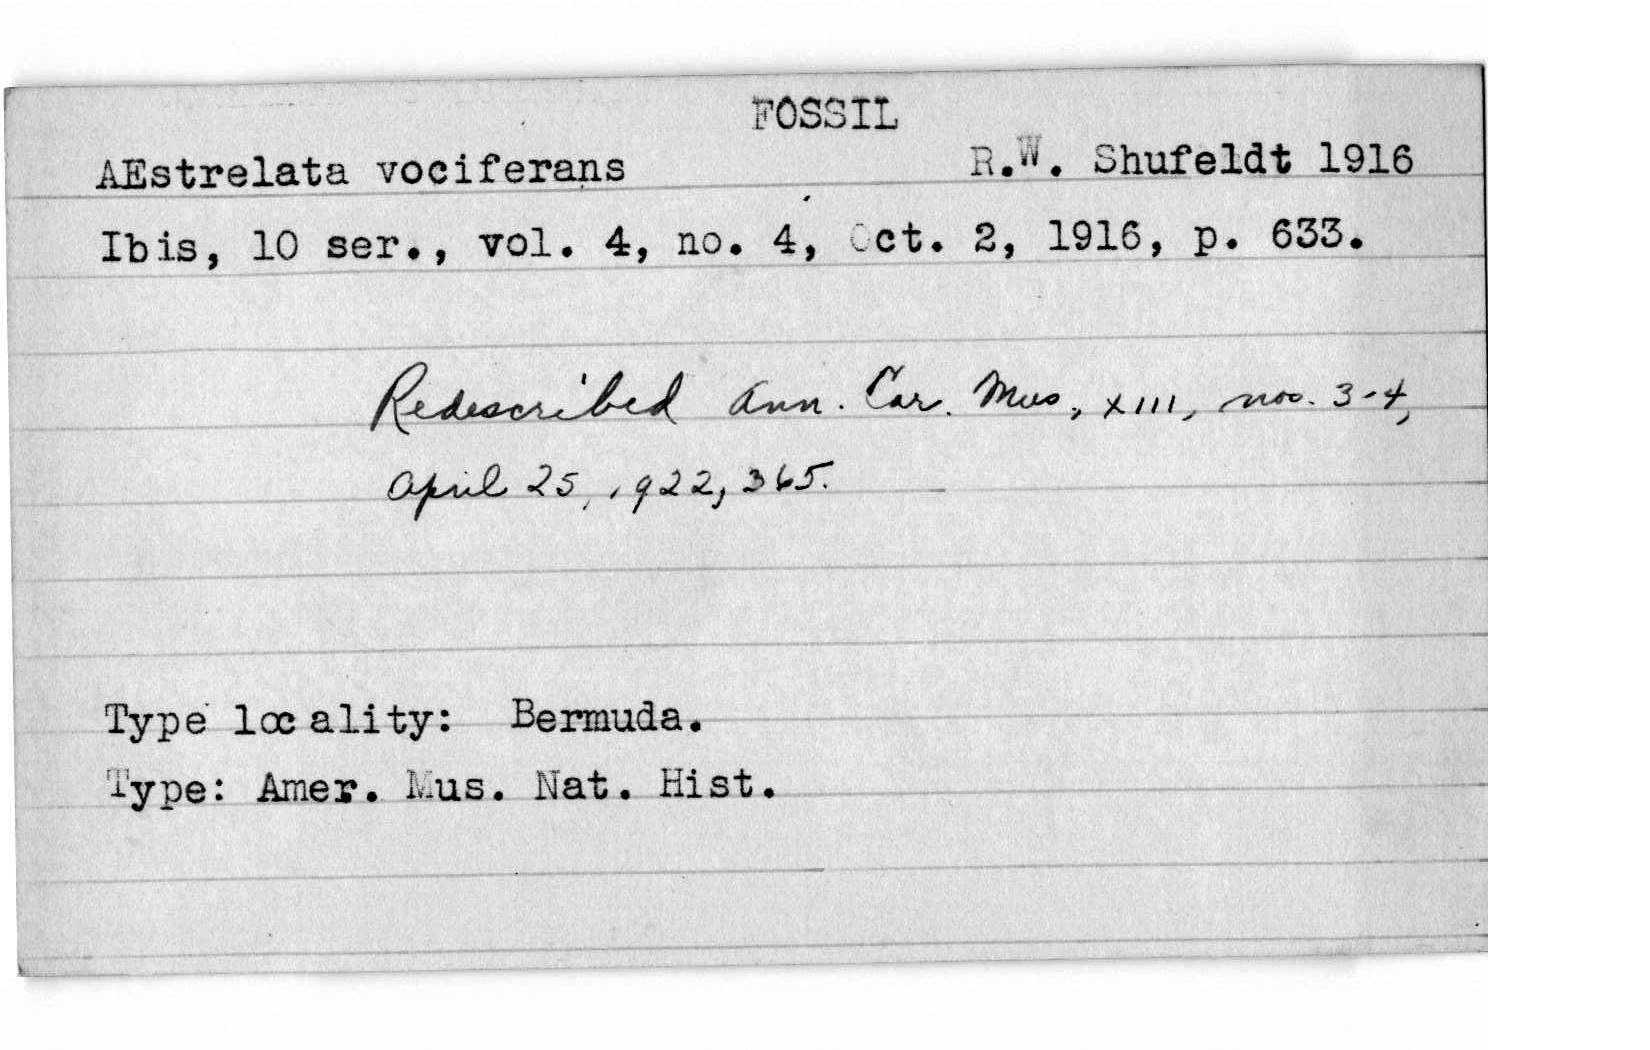 FOSSIL
AEstrelata vociferans R.W. Shufeldt 1916
Ibis, 10 ser., vol. 4, no. 4, Oct. 2, 1916, p. 633.
Redescribed Ann. Car. Mus., XIII, nos. 3-4,
April 25, 1922, 365.
Type locality: Bermuda.
Type: Amer. Mus. Nat. Hist.